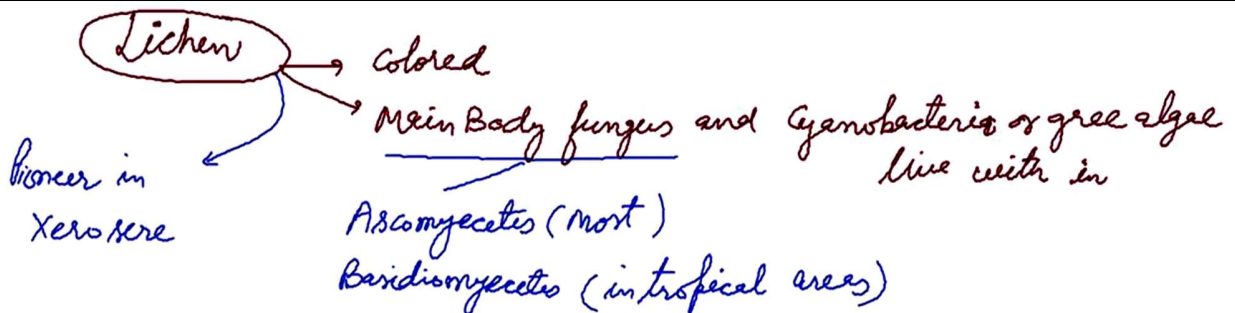 Lichen
colored
Main Body fungus and Cyanobacteria or gree algae
live with in
Pioneer in
Xerosere
Ascomycetes (most)
Basidiomycetes (in tropical areas)